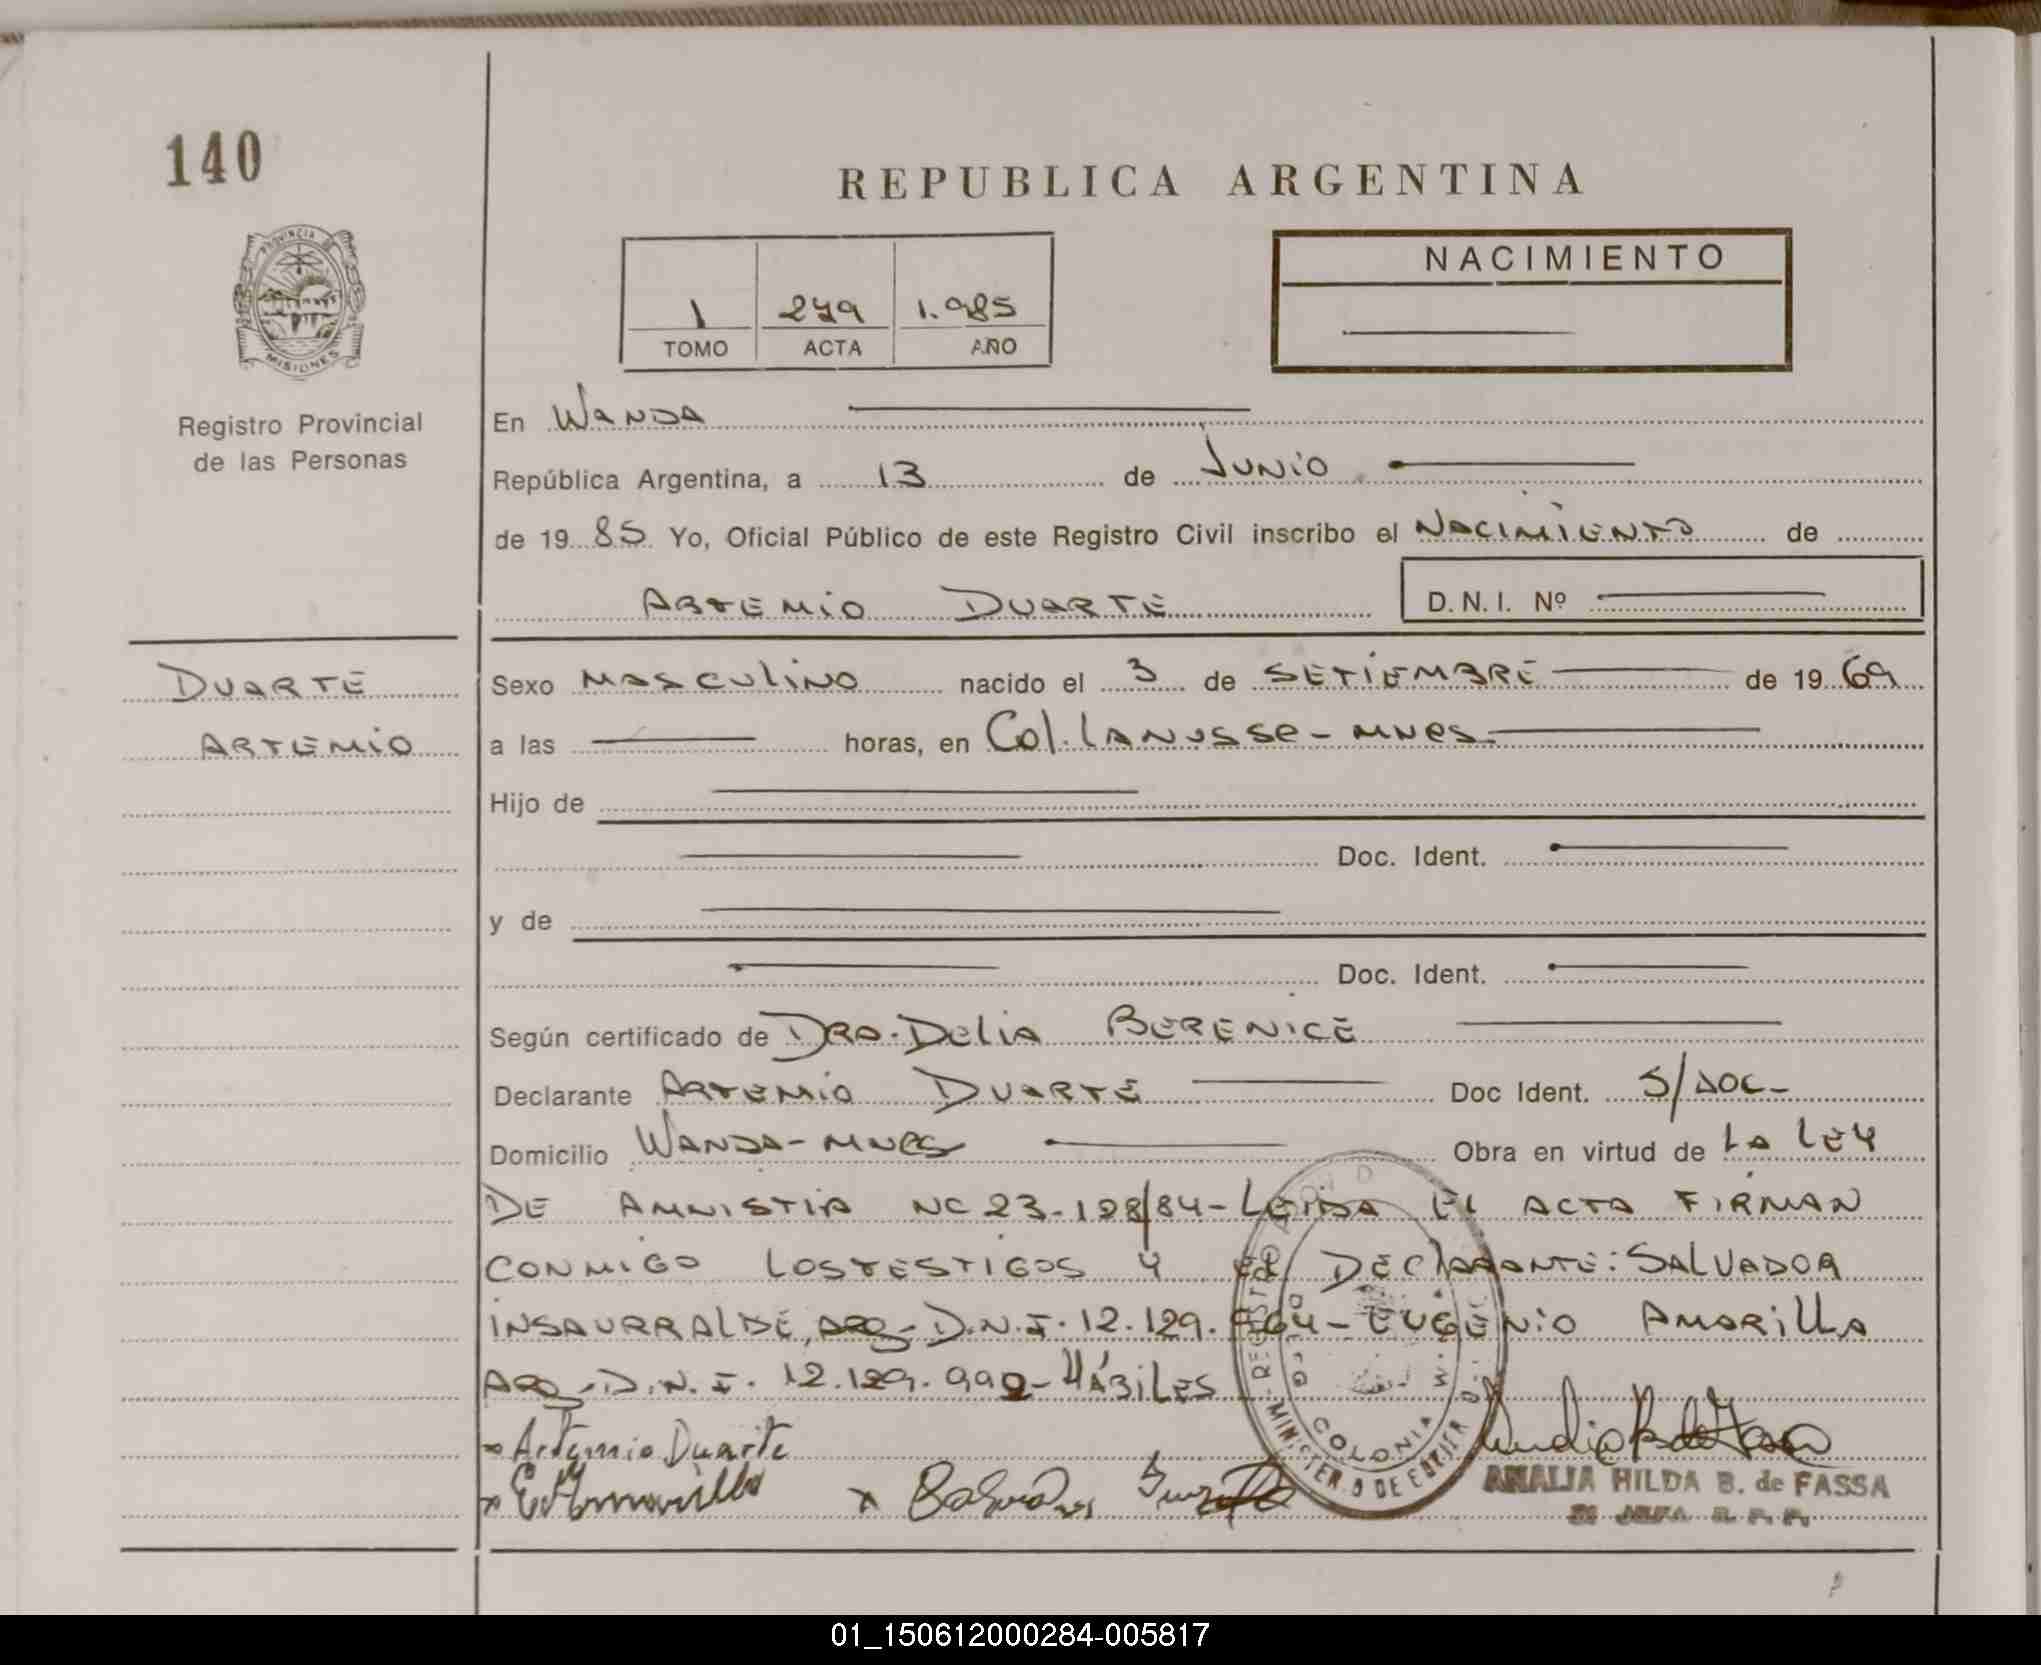 140
REPUBLICA ARGENTINA
PROVINCIA DE
MISIONES
NACIMIENTO
1 279 1.985
TOMO ACTA AÑO
Registro Provincial
de las Personas
En WANDA
República Argentina, a 13 de JUNIO
de 19 85 Yo, Oficial Público de este Registro Civil inscribo el NACIMIENTO de
ARTEMIO DUARTE D.N.I. Nº
DUARTE
ARTEMIO
Sexo MASCULINO nacido el 3 de SETIEMBRE de 19 69
a las horas, en Col. LANUSSE - MNES
Hijo de
Doc. Ident.
y de
Doc. Ident.
Según certificado de DRA. DELIA BERENICE
Declarante ARTEMIO DUARTE Doc Ident. S/DOC-
Domicilio WANDA - MNES Obra en virtud de LA LEY
DE AMNISTIA NC 23-128/84 - LEIDA EL ACTA FIRMAN
CONMIGO LOS TESTIGOS Y EL DECLARANTE: SALVADOR
INSAURRALDE, ARG - D.N.I. 12.129. - EUGENIO AMARILLA
ARG - D.N.I. 12.129.992 - HÁBILES
x Artemio Duarte
COLONIA
ANALIA HILDA B. de FASSA
01_150612000284-005817